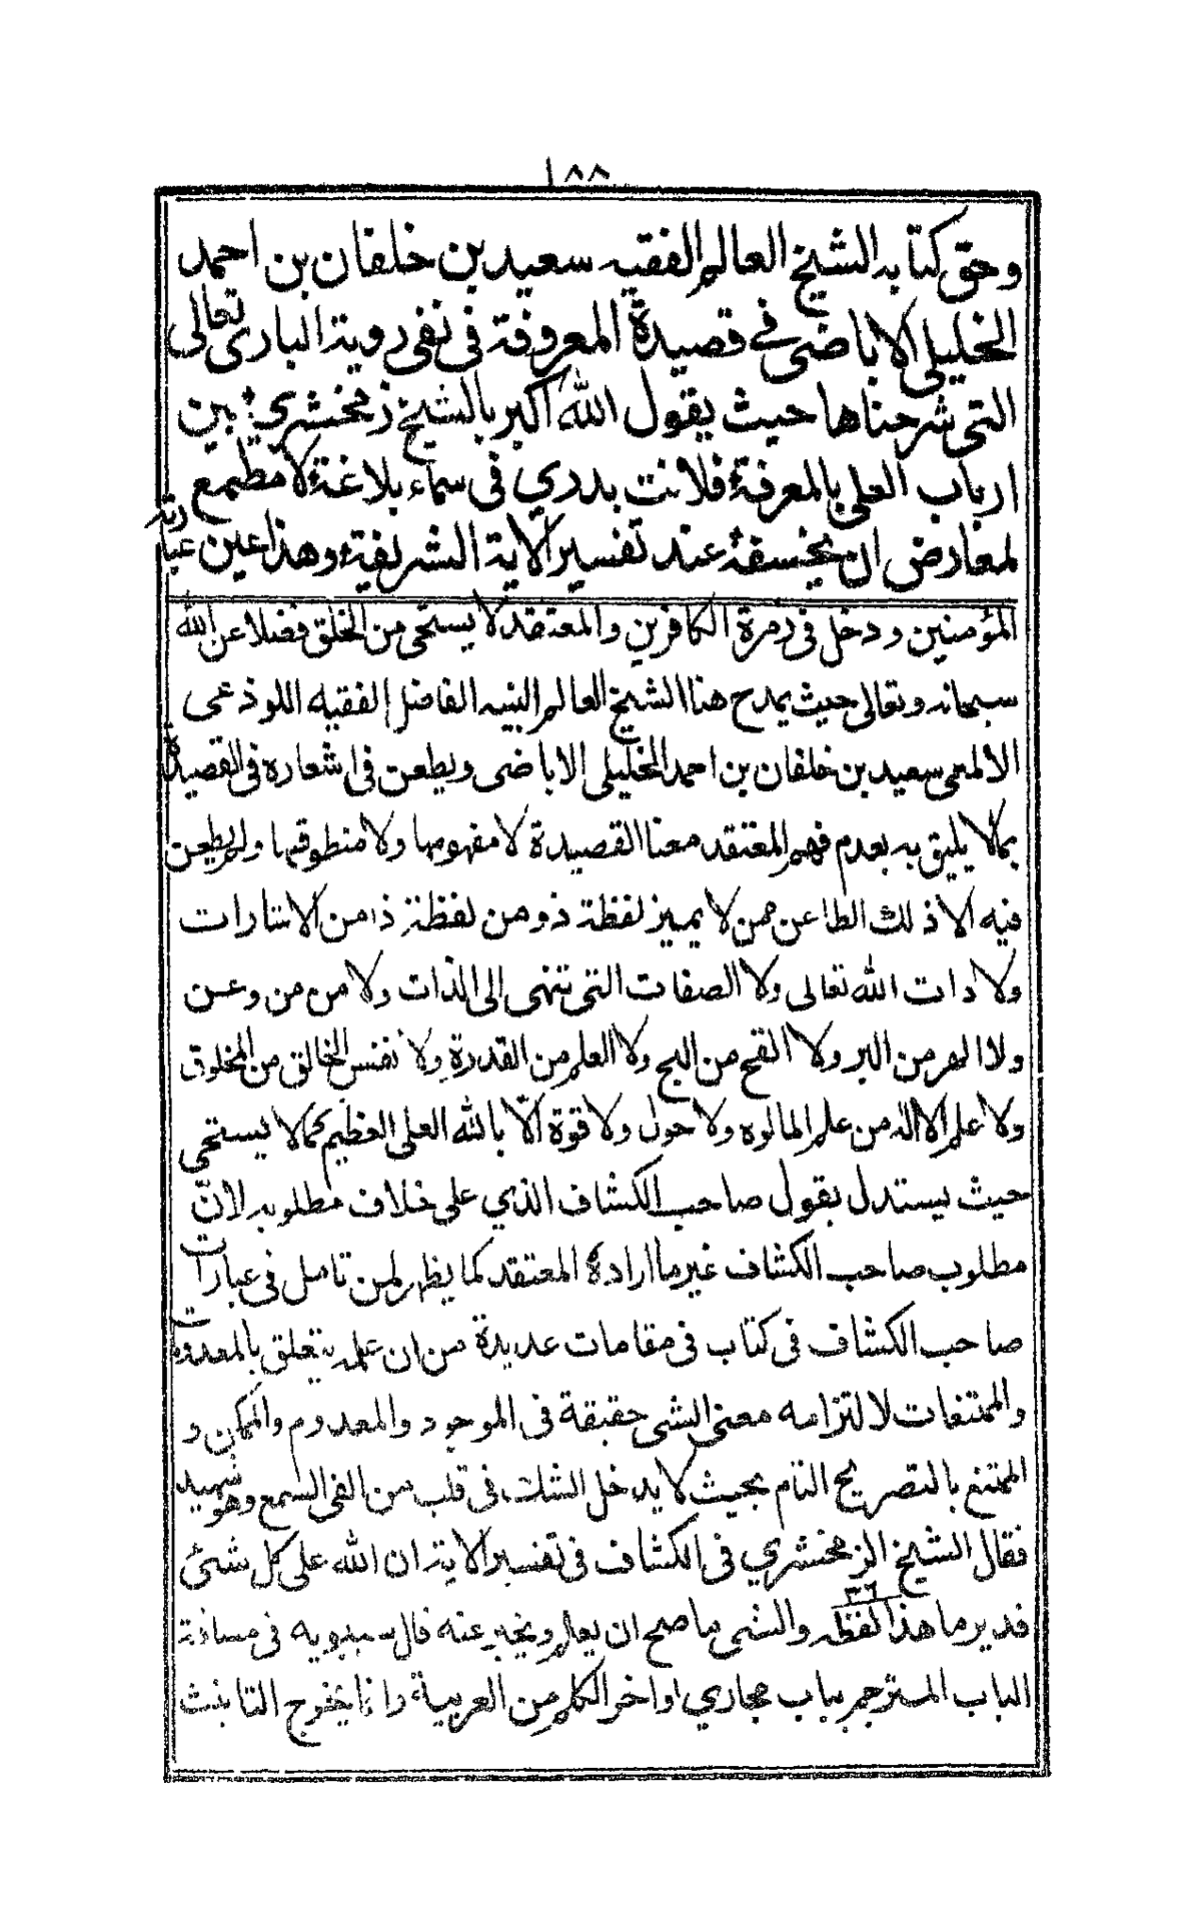 ١٨٨
وحق كتابه الشيخ العالم الفقيه سعيد بن خلفان بن احمد
الخليلي الاباضى في قصيدة المعروفة فى نفى روية البارى تعالى
التى شرحناها حيث يقول الله اكبر يا لشيخ زمخشري بين
ارباب العلى بالمعرفة فلانت بدري فى سماء بلاغة لا مطمع
لمعارض ان يخسفه عند تفسير الاية الشريفة وهذا عين عبارته
المؤمنين ودخل فى زمرة الكافرين والمعتقد لا يستحى من الخلق فضلا عن الله
سبحانه وتعالى حيث يمدح هنا الشيخ العالم النبيه الفاضل الفقيه اللوذعى
الالمعى سعيد بن خلفان بن احمد الخليلى الاباضى ويطعن فى اشعاره فى القصيدة
بما لا يليق به بعدم فهم المعتقد معنا القصيدة لا مفهومها ولا منطوقها ولم يطعن
فيه الا ذلك الطاعن ممن لا يميز لفظة ذو من لفظة ذا من الاشارات
ولا ذات الله تعالى ولا الصفات التى تنتهى الى الذات ولا من من وعن
ولا الهر من البر ولا القح من البح ولا العلم من القدرة ولا نفس الخالق من المخلوق
ولا علم الاله من علم المالوه ولا حول ولا قوة الا بالله العلى العظيم كما لا يستحى
حيث يستدل بقول صاحب الكشاف الذي على خلاف مطلوبه لانّ
مطلوب صاحب الكشاف غير ما اراده المعتقد كما يظهر لمن تامل فى عبارات
صاحب الكشاف فى كتاب فى مقامات عديدة من ان علمه يتعلق بالمعدومات
والممتنعات لالتزامه معنى الشى حقيقة فى الموجود والمعدوم والممكن و
الممتنع بالتصريح التام بحيث لا يدخل الشك فى قلب من القى السمع وهو شهيد
فقال الشيخ الزمخشري فى الكشاف فى تفسير الاية ان الله على كل شئى
قدير ما هذا لفظه ٣٦ والشى ما صح ان يعلم ويخبر عنه قال سيبويه فى
الباب المترجم بباب مجاري اواخر الكلم من العربية وانما يخرج التانيث